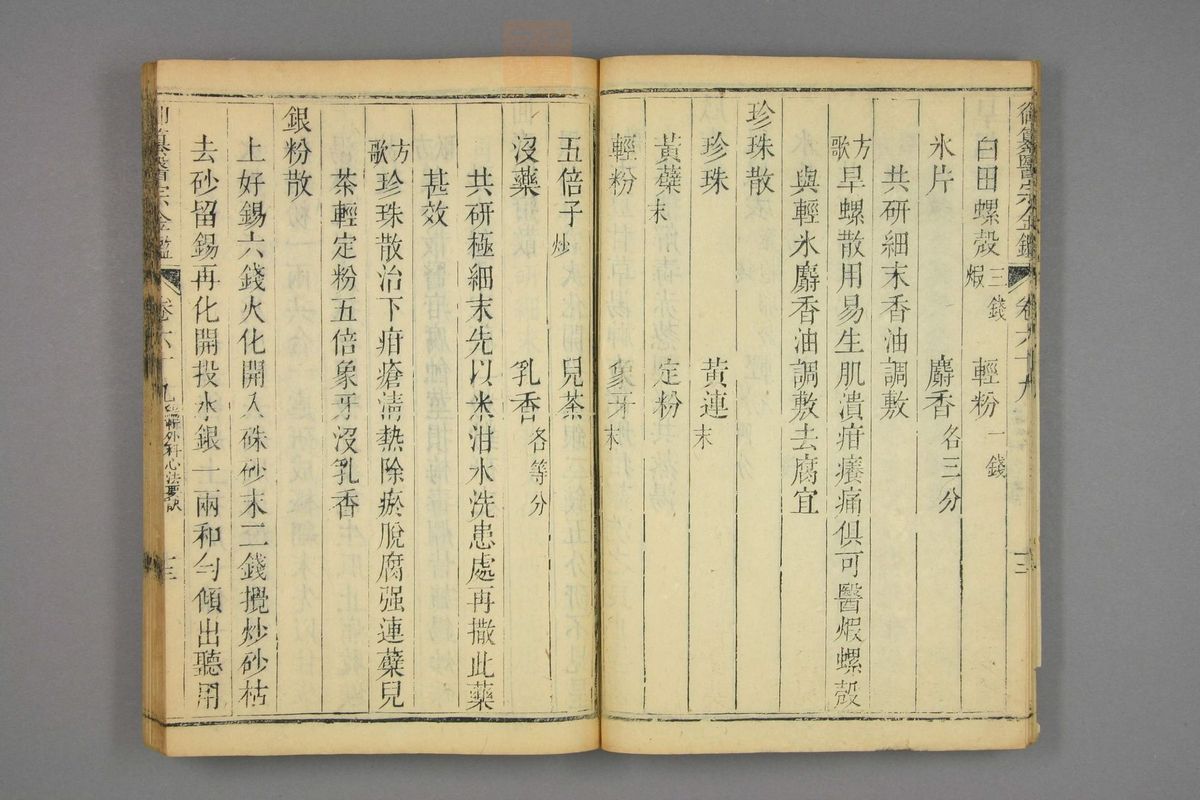 御纂醫宗金鑑 卷六十九 十三
白田螺殼三錢煆 輕粉一錢
氷片 麝香各三分
共研細末香油調敷
方歌 旱螺散用易生肌潰疳癢痛俱可醫煆螺殼
與輕氷麝香油調敷去腐宜
珍珠散
珍珠 黃連末
黃蘗末 定粉
輕粉 象牙末
五倍子炒 兒茶
沒藥 乳香各等分
共研極細末先以米泔水洗患處再撒此藥
甚效
方歌 珍珠散治下疳瘡清熱除瘀脫腐强連蘗兒
茶輕定粉五倍象牙沒乳香
銀粉散
上好錫六錢火化開入硃砂末二錢攪炒砂枯
去砂留錫再化開投水銀一兩和勻傾出聽用
纂醫宗金鑑 卷六十九 外科心法要訣 十三